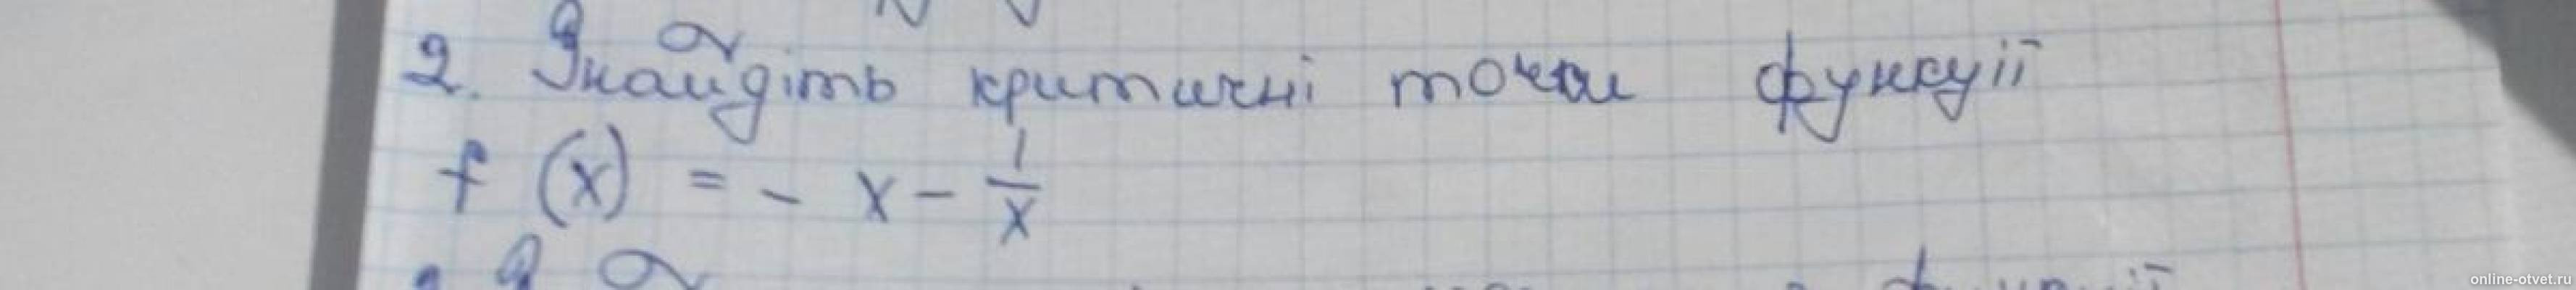 2. Знайдіть критичні точки функції
f (x) = - x - 1/x
online-otvet.ru